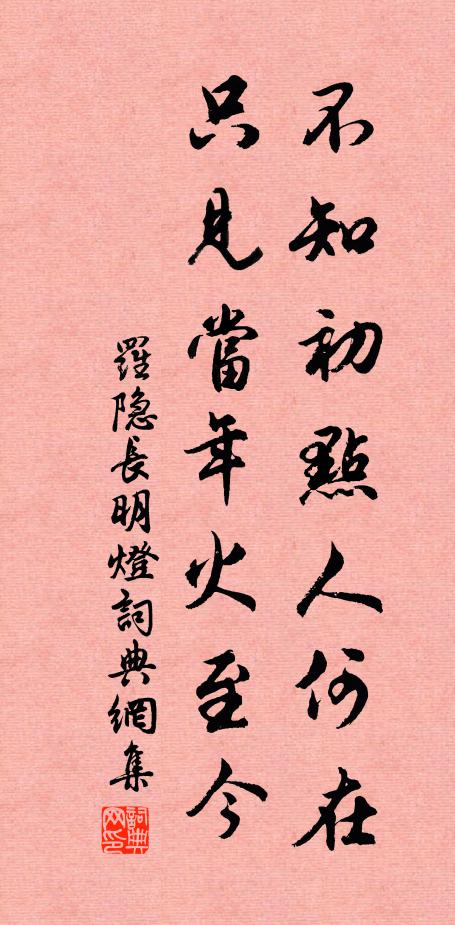 不知初點人何在
只見當年火至今
羅隐長明燈詞典網集
詞典网印